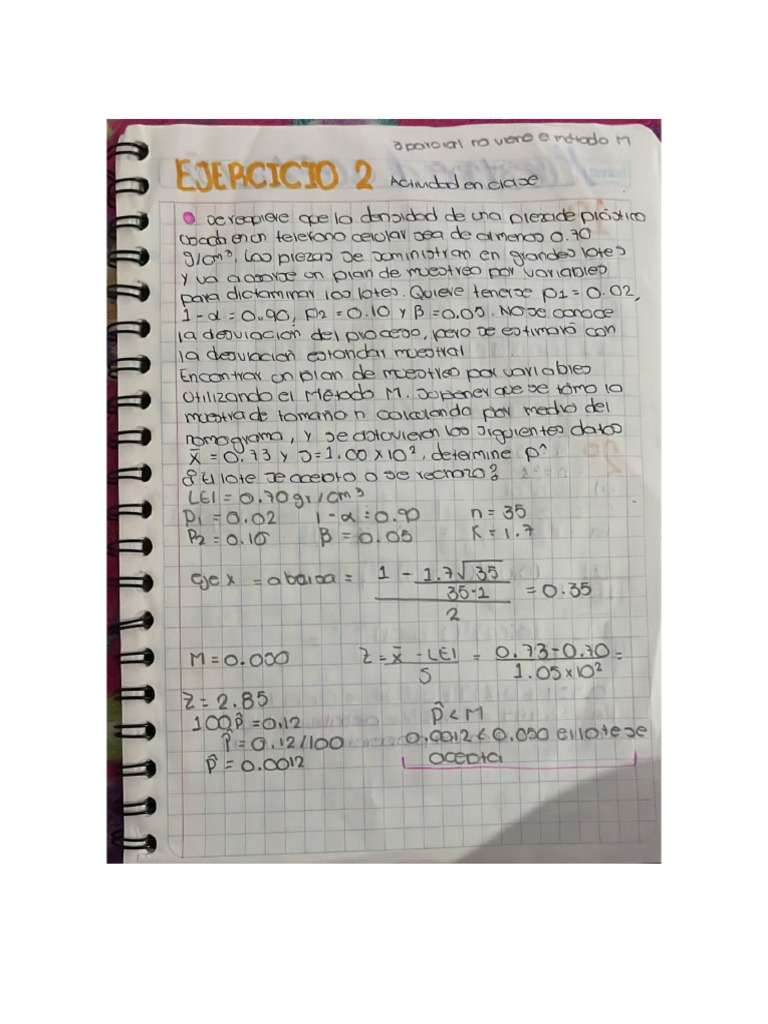 3 parcial no viene e método M
EJERCICIO 2 Actividad en clase
Se requiere que la densidad de una pieza de plástico
usada en un telefono celular sea de al menos 0.70
g/cm³. Las piezas se suministran en grandes lotes
y va a usarse un plan de muestreo por variables
para dictaminar los lotes. Quiere tenerse p1 = 0.02,
1-α = 0.90, p2 = 0.10 y β = 0.05. No se conoce
la desviación del proceso, pero se estimará con
la desviación estandar muestral
Encontrar un plan de muestreo por variables
utilizando el Método M. Suponer que se tomo la
muestra de tamaño n calculando por medio del
nomograma, y se obtuvieron los siguientes datos
x̄ = 0.73 y S = 1.00 x10², determine p^
¿El lote se acepta o se rechaza?
LEI = 0.70 gr/cm³
P1 = 0.02 1-α = 0.90 n = 35
P2 = 0.10 β = 0.05 K = 1.7
Eje x = abaisa = 1 - 1.7√35
35-1 = 0.35
2
M = 0.050 Z = x̄ - LEI = 0.73 - 0.70 =
S 1.05 x 10²
Z = 2.85
100p̂ = 0.12 p̂ < M
p̂ = 0.12/100 0.0012 < 0.050 el lote se
p̂ = 0.0012 acepta